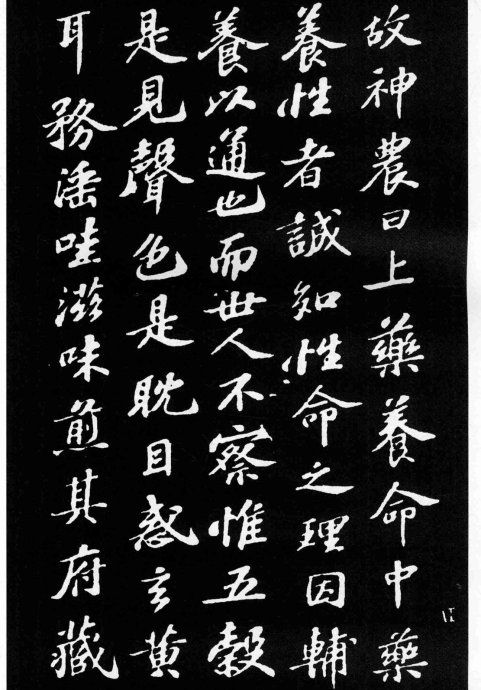 故神農曰上藥養命中藥
養性者誠知性命之理因輔
養以通也而世人不察惟五穀
是見聲色是耽目惑玄黄
耳務淫哇滋味煎其府藏